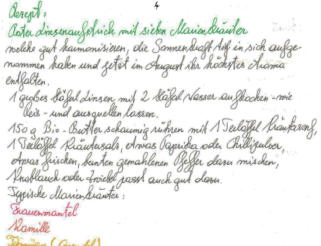 4
Rezept:
Roter Linsenaufstrich mit sieben Marienkräuter
welche gut harmonisieren, die Sonnenkraft tief in sich aufge-
nommen haben und jetzt im August ihr höchstes Aroma
entfalten.
1 großer Häferl Linsen mit 2 Häferl Wasser aufkochen - wie
Reis - und ausquellen lassen.
150 g Bio-Butter schaumig rühren mit 1 Teelöffel
1 Teelöffel Kräutersalz, etwas Paprika oder Chilipulver,
etwas frischen, bunten gemahlenen Pfeffer dazu mischen,
Knoblauch oder Zwiebel passt auch gut dazu.
Typische Marienkräuter:
Frauenmantel
Kamille